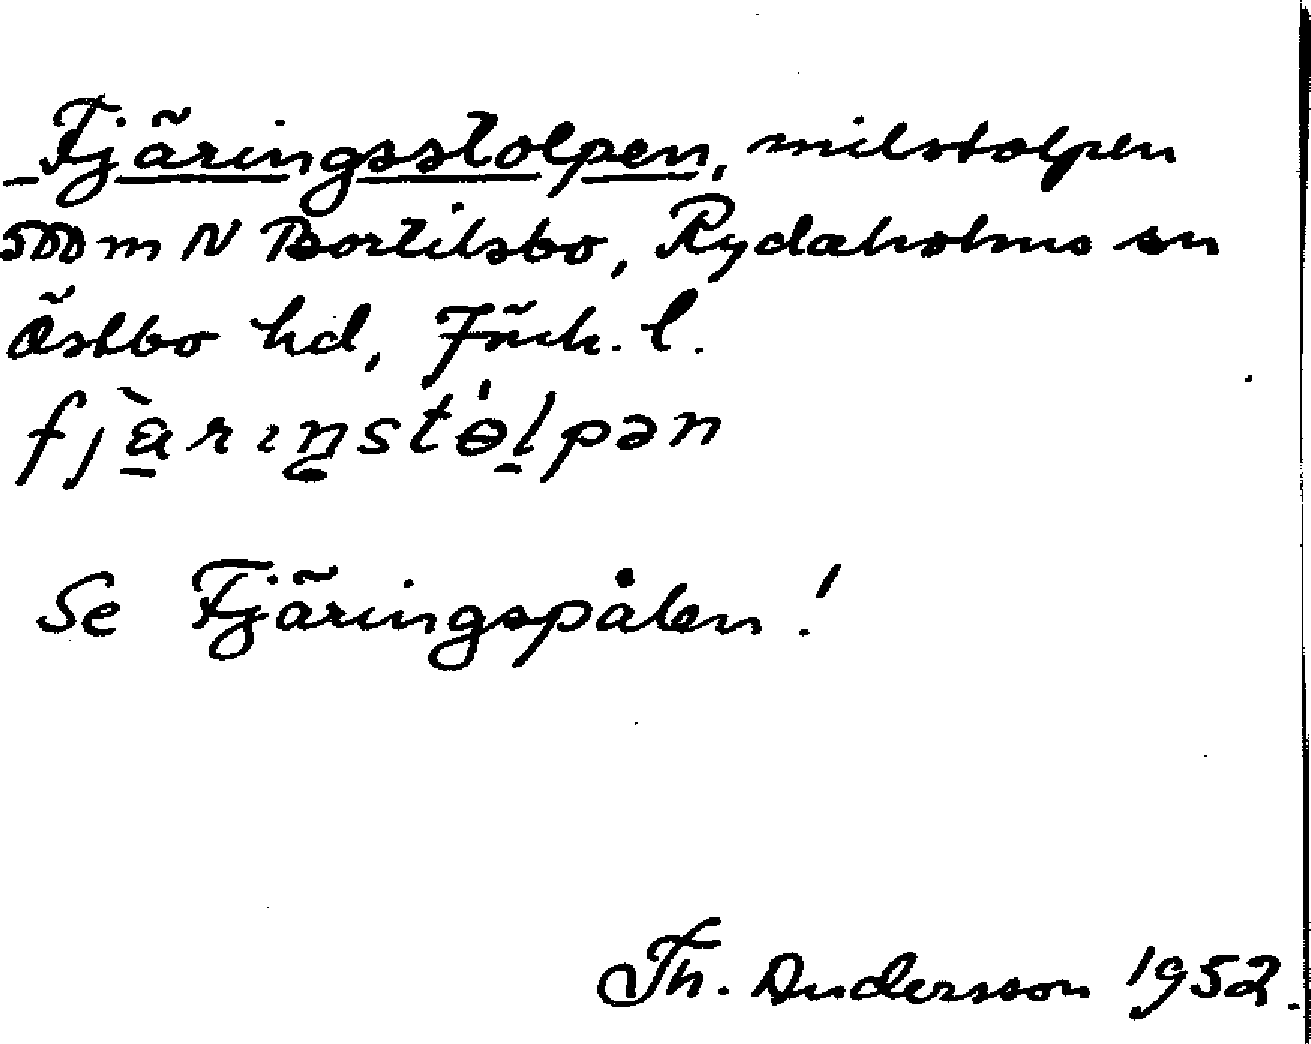 Fjäringsstolpen, milstolpen
500 m N Bortilsbo, Rydaholms sn
Östbo hd, Jönk. l.
fjàrıŋstɵ́lpən
Se Fjäringspålen!
Th. Andersson 1952.